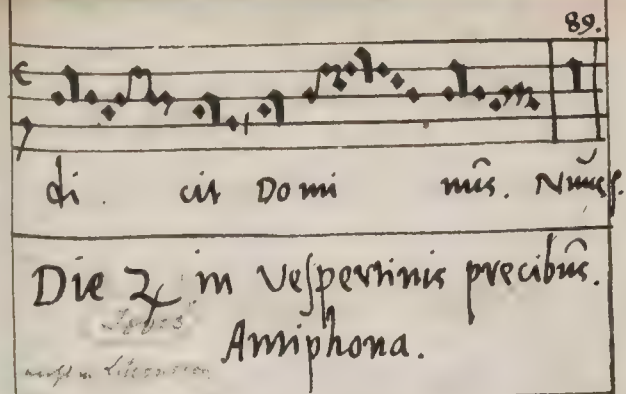 89.
di cit Domi nûs.
Die ♃ in Vespertinis precibûs.
Antiphona.